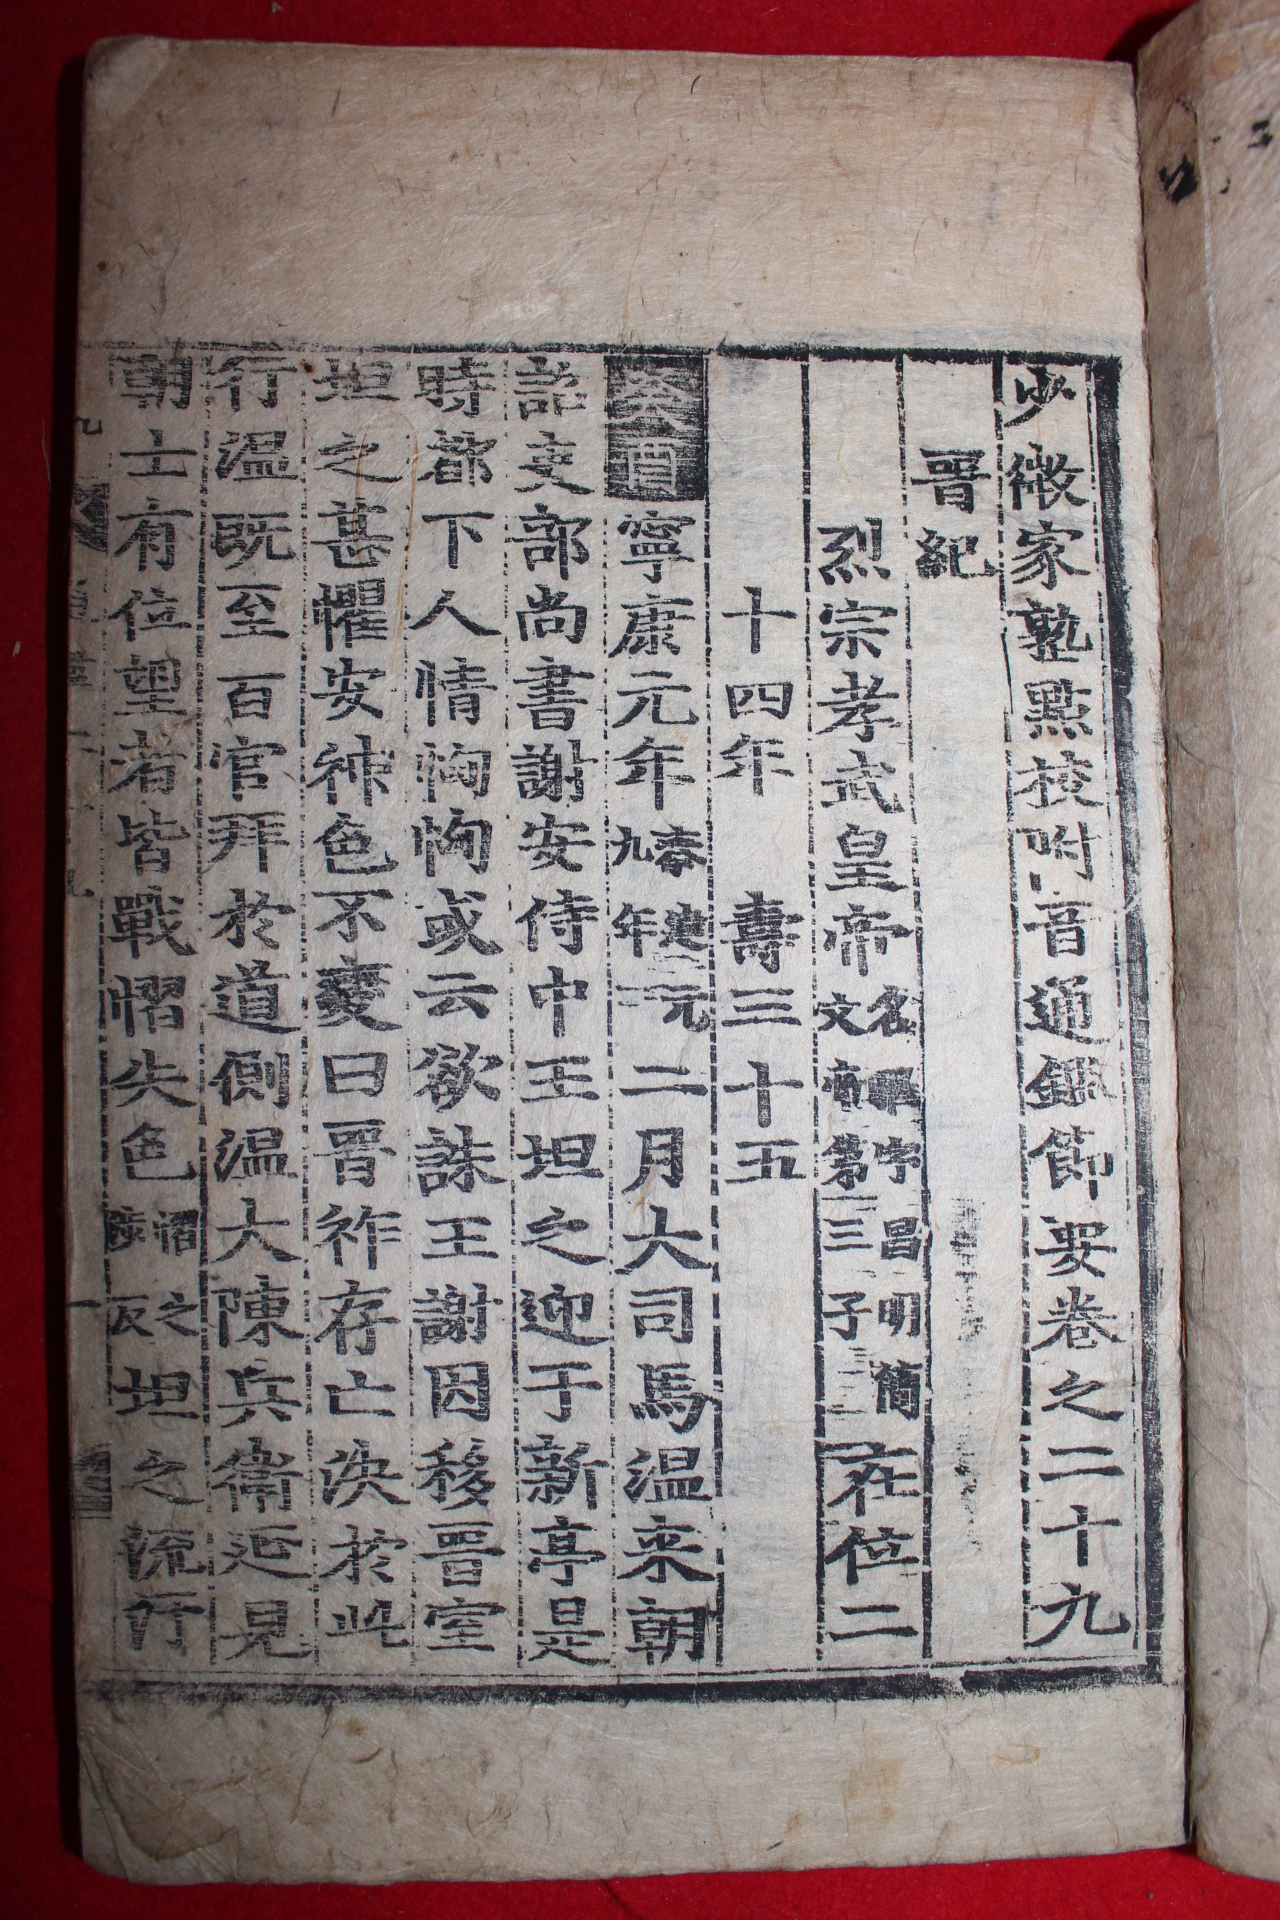 少微家塾點校附音通鑑節要卷之二十九
晉紀
烈宗孝武皇帝名曜字昌明簡文帝第三子在位二
十四年 壽三十五
癸酉寧康元年秦建元九年二月大司馬温来朝
詔吏部尚書謝安侍中王坦之迎于新亭是
時都下人情恟恟或云欲誅王謝因移晉室
坦之甚懼安神色不變曰晉祚存亡決於此
行温既至百官拜於道側温大陳兵衛延見
朝士有位望者皆戰慴失色慴之涉反坦之流汗